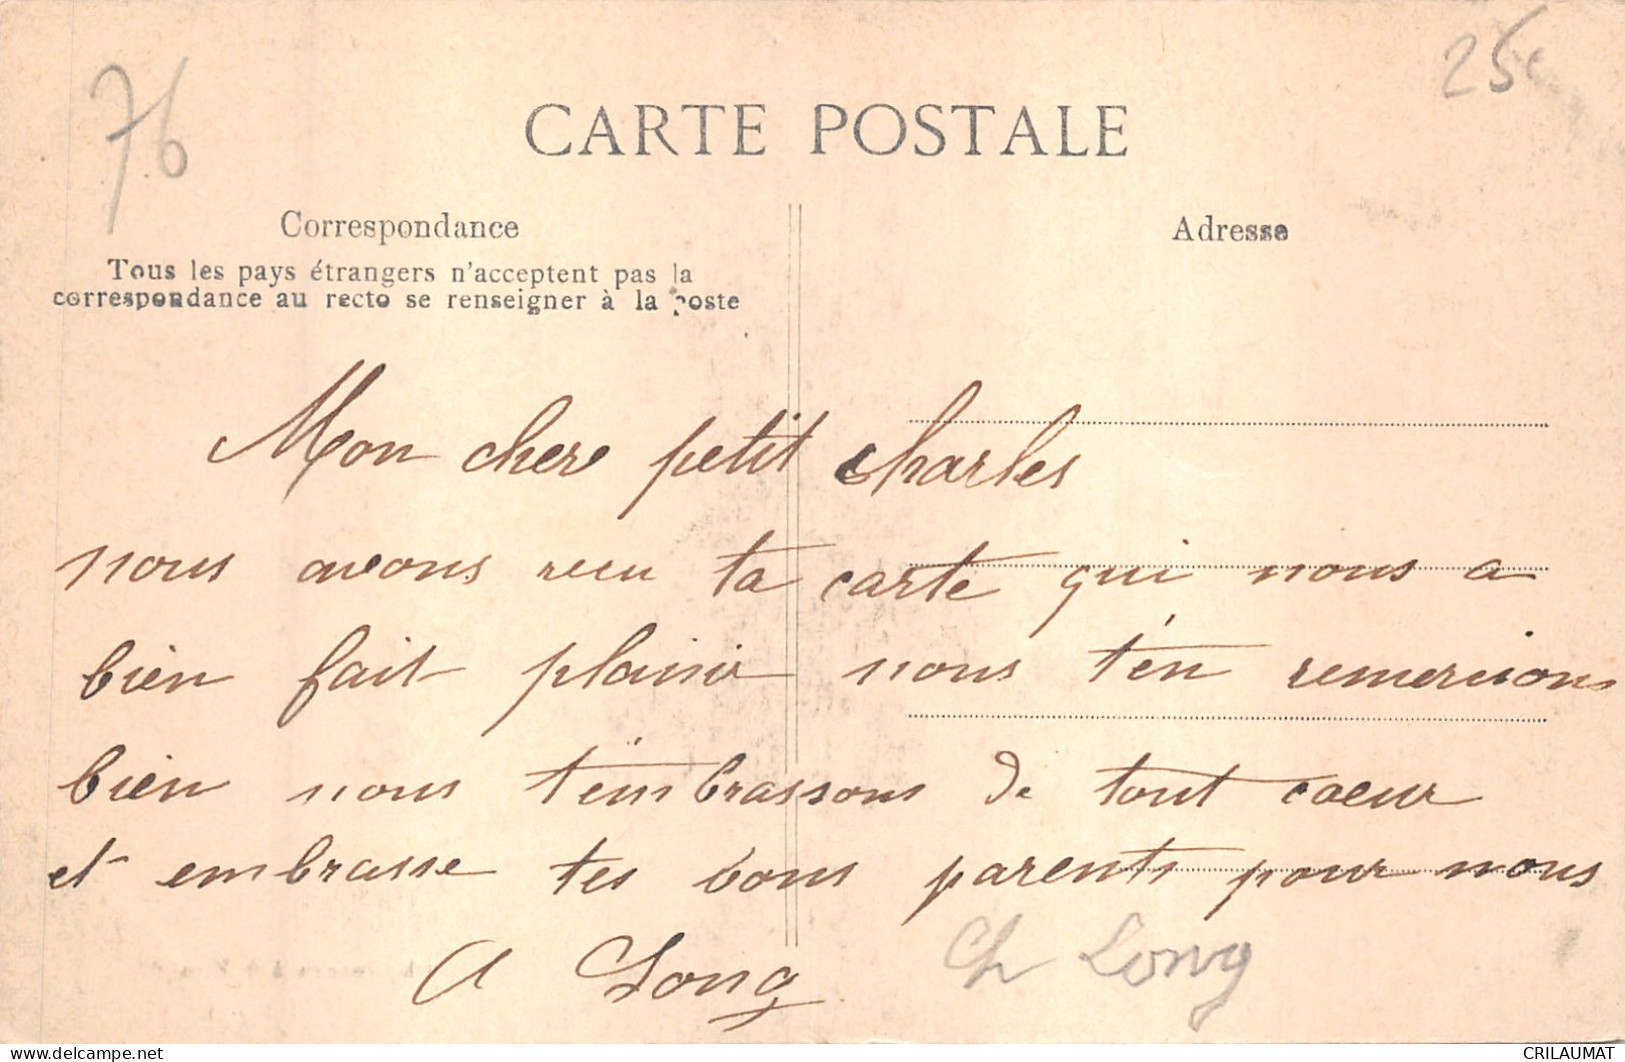 76
25c
CARTE POSTALE
Correspondance
Adresse
Tous les pays étrangers n'acceptent pas la
correspondance au recto se renseigner à la poste
Mon chere petit charles
nous avons recu ta carte qui nous a
bien fait plaisir nous t'en remercions
bien nous t'embrassons de tout coeur
et embrasse tes bons parents pour nous
A Long
Ch Long
CRILAUMAT